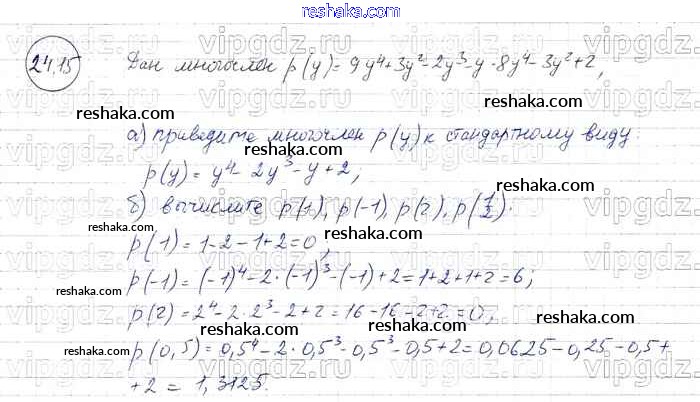 reshaka.com
24.15 Дан многочлен p(y)=9y⁴+3y²-2y³-y-8y⁴-3y²+2,
reshaka.com reshaka.com
а) приведите многочлен p(y) к стандартному виду:
reshaka.com
p(y)=y⁴-2y³-y+2,
б) вычислите p(1), p(-1), p(2), p(1/2).
reshaka.com reshaka.com
p(1)=1-2-1+2=0,
reshaka.com
p(-1)=(-1)⁴-2·(-1)³-(-1)+2=1+2+1+2=6;
reshaka.com
p(2)=2⁴-2·2³-2+2=16-16-2+2=0,
reshaka.com reshaka.com
p(0,5)=0,5⁴-2·0,5³-0,5³-0,5+2=0,0625-0,25-0,5+
+2=1,3125.
reshaka.com